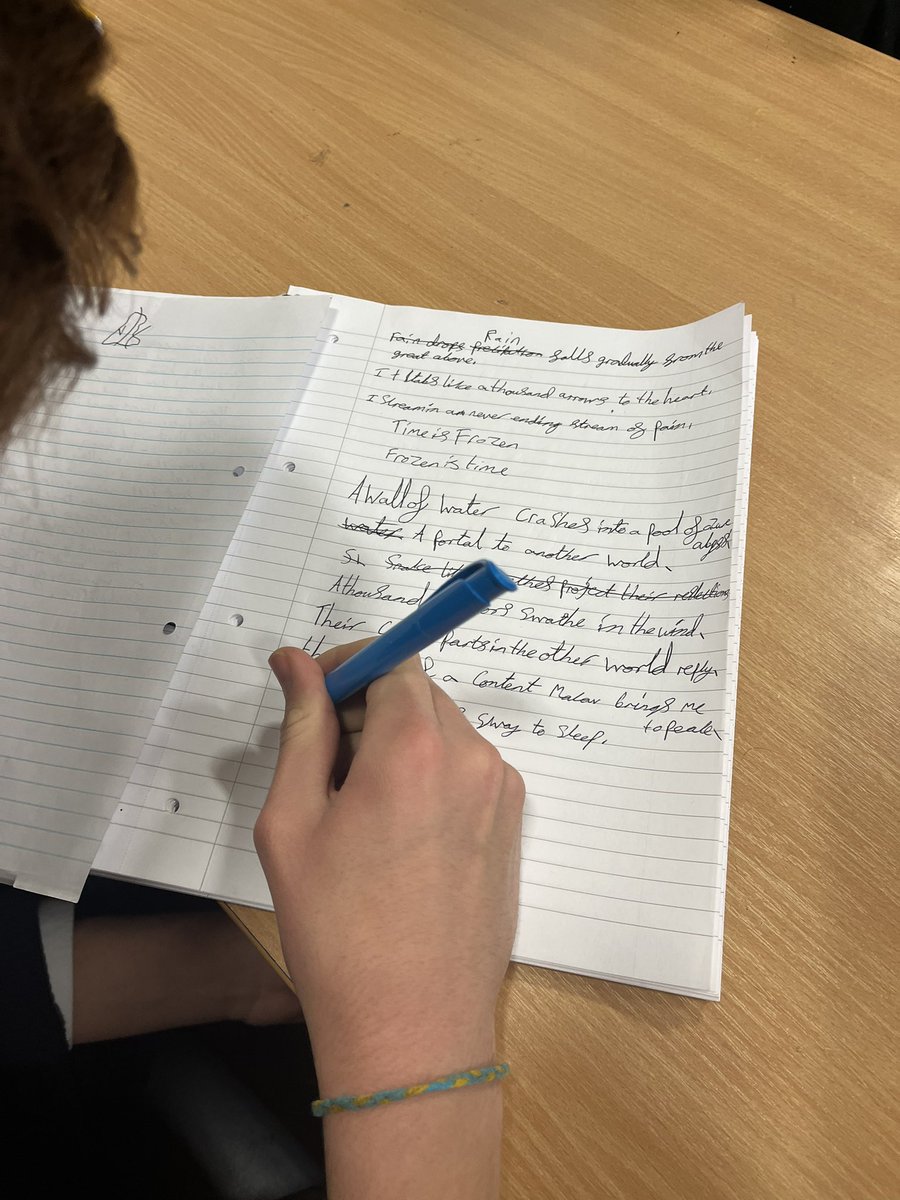 Rain
Rain drops falls gradually from the
great above.
It stabs like a thousand arrows to the heart.
I Stream in a never ending stream of pain.
Time is Frozen
Frozen is time
A wall of water crashes into a pool of
water A portal to another world.
Snake project their reflections
A thousand swathe in the wind.
Their parts in the other world reply.
a content brings me
to peace.
sway to sleep.